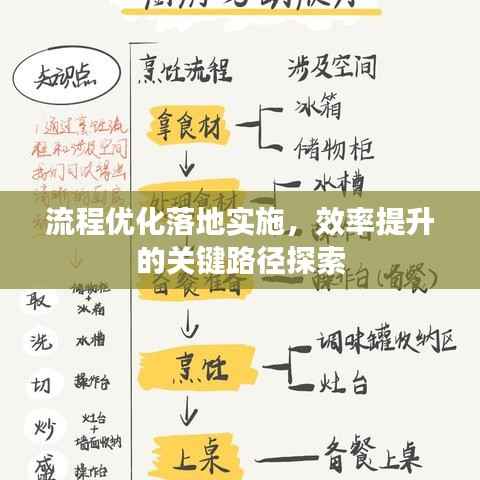 知识点
烹饪流程
涉及空间
拿食材
冰箱
储物柜
1通过烹饪流
程和涉及空间
我们可以得出
清晰的
处理食材
水槽
流程优化落地实施，效率提升
的关键路径探索
备餐准备
操作台(备餐)
取
储物柜
+
冰箱
洗
水槽
切
操作台
炒
灶台
+
墙面收纳
盛
操作台
烹饪
调味罐收纳区
灶台
上桌
备餐上桌